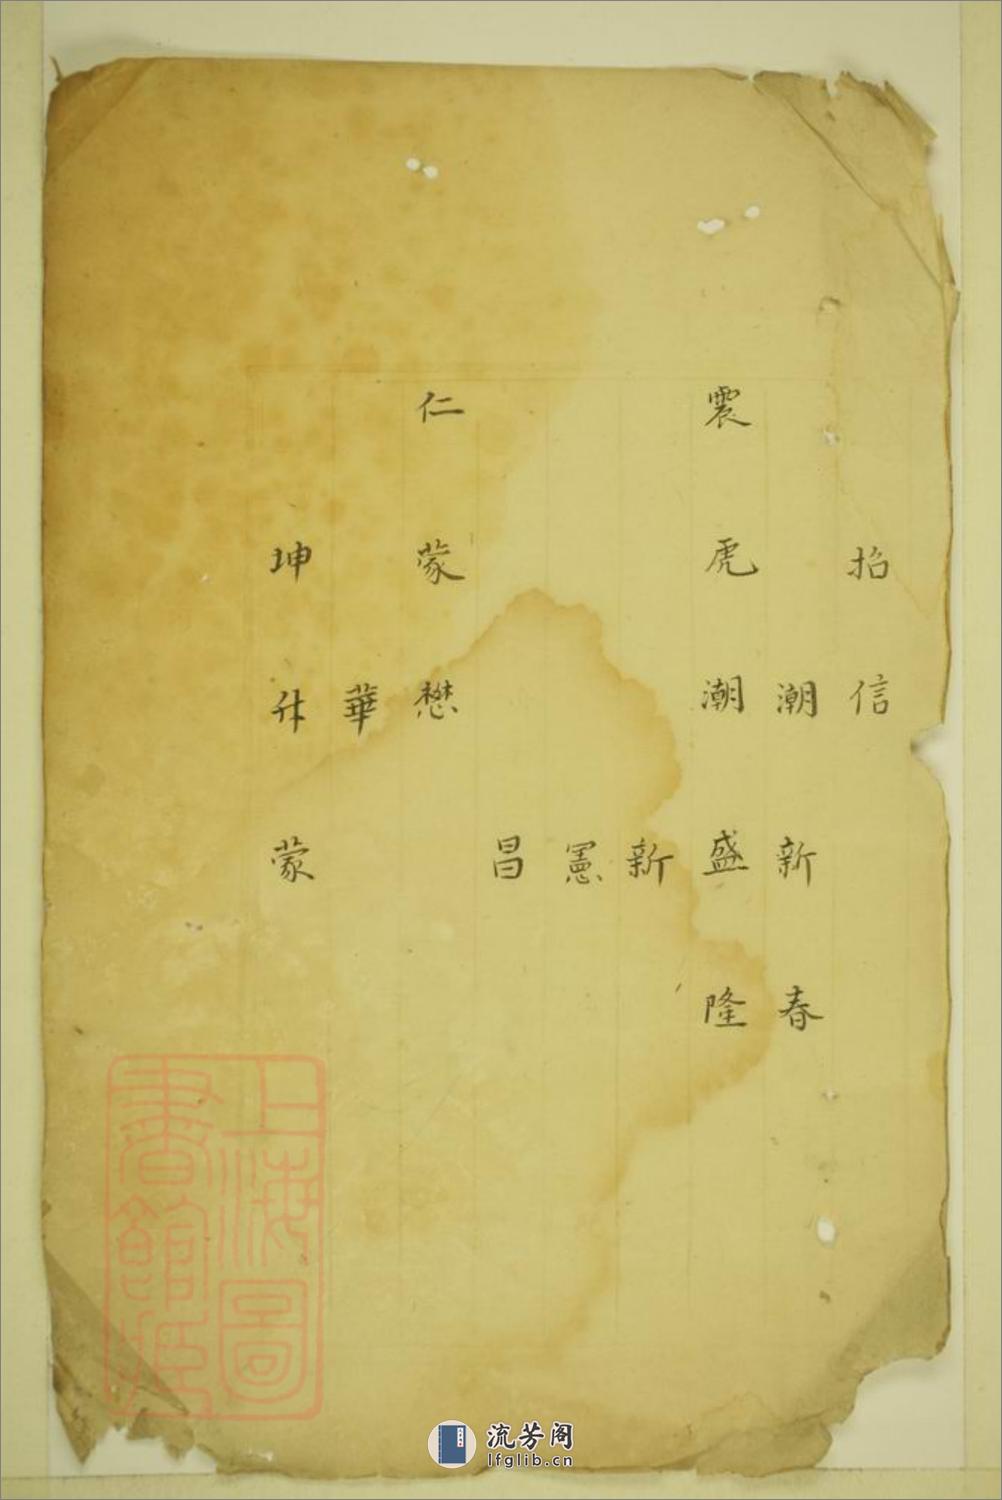 招信
潮新春
震虎潮盛隆
新
憲
昌
仁蒙懋
華
坤升蒙
上海圖書館藏
流芳阁
lfglib.cn